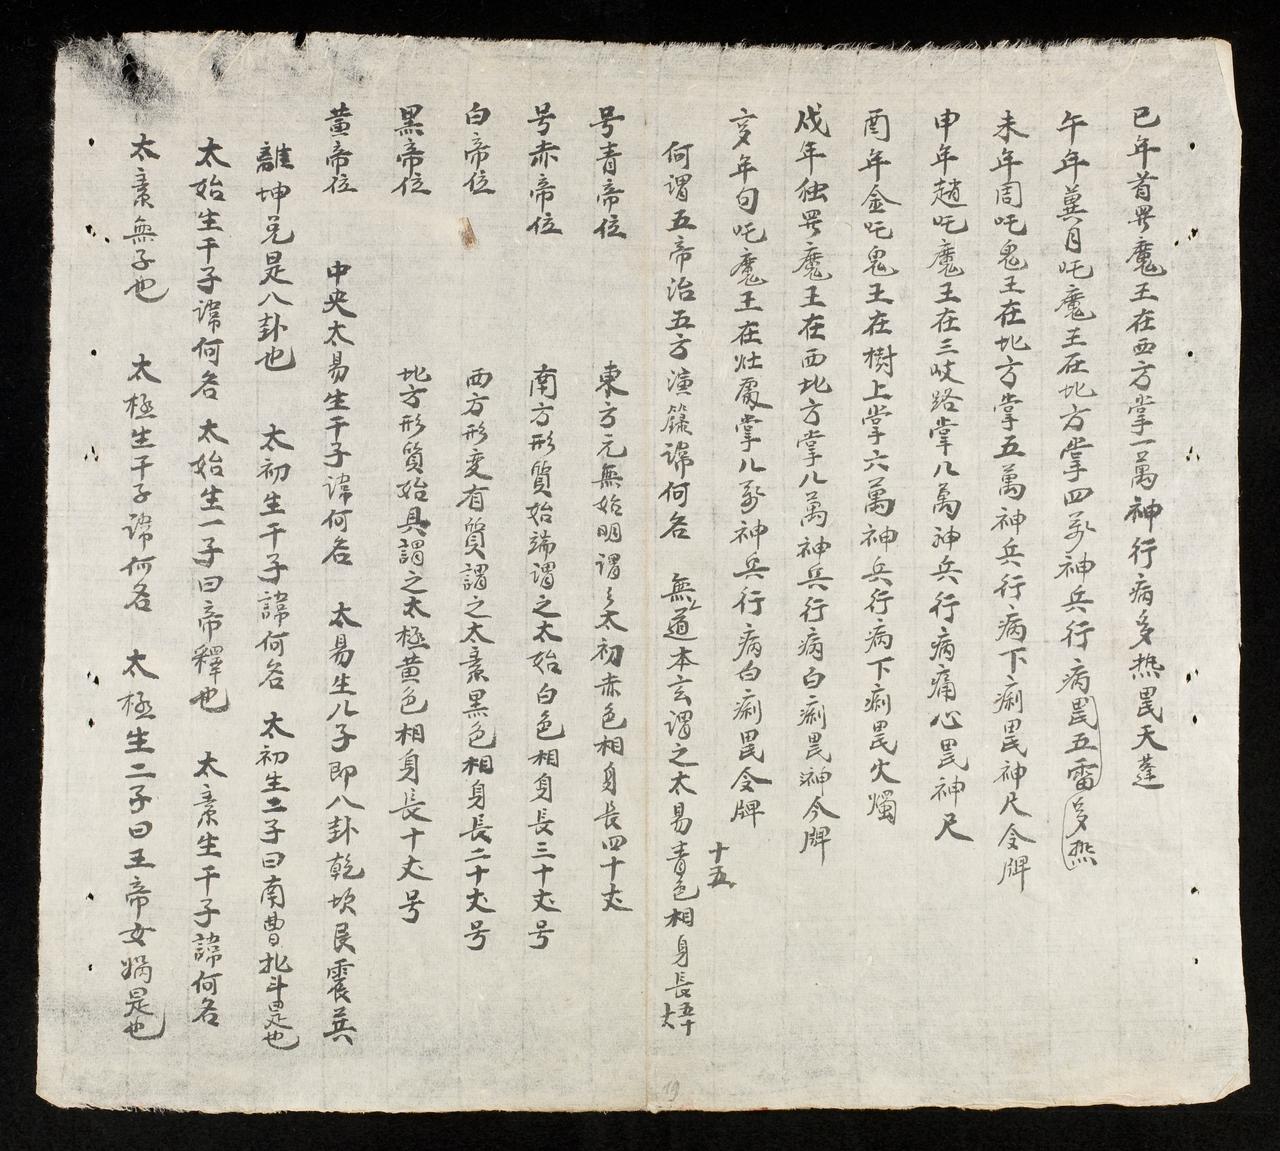 巳年首罗魔王在西方掌一萬神行病多热畏天蓬
午年莫月吒魔王在北方掌四万神兵行病畏五雷多热
未年周吒鬼王在北方掌五萬神兵行病下痢畏神尺令牌
申年趙吒魔王在三岐路掌八萬神兵行病痛心畏神尺
酉年金吒鬼王在樹上掌六萬神兵行病下痢畏火燭
戌年独罗魔王在西北方掌八萬神兵行病白痢畏神令牌
亥年句吒魔王在灶處掌八万神兵行病白痢畏令牌
十五
何謂五帝治五方演籙諱何名 無道本玄謂之太易青色相身長五十丈
号青帝位 東方元無始明謂之太初赤色相身長四十丈
号赤帝位 南方形質始端谓之太始白色相身長三十丈号
白帝位 西方形变有質謂之太素黑色相身長二十丈号
黑帝位 北方形質始具謂之太極黄色相身長十丈号
黄帝位 中央太易生千子諱何名 太易生八子即八卦乾坎艮震巽
離坤兑是八卦也 太初生千子諱何名 太初生二子曰南曹北斗是也
太始生千子諱何名 太始生一子曰帝釋也 太素生千子諱何名
太素無子也 太極生千子諱何名 太極生二子曰王帝女媧是也
19